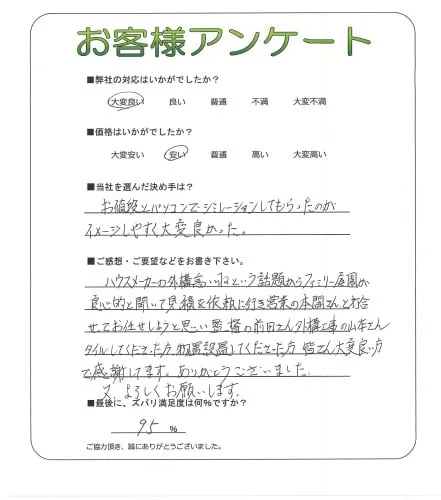 お客様アンケート
■弊社の対応はいかがでしたか?
大変良い 良い 普通 不満 大変不満
■価格はいかがでしたか?
大変安い 安い 普通 高い 大変高い
■当社を選んだ決め手は?
お値段とパソコンでシミレーションしてもらったのが
イメージしやすく大変良かった。
■ご感想・ご要望などをお書き下さい。
ハウスメーカーの外構高いねという話題からファミリー庭園が
良心的と聞いて見積を依頼に行き営業の本間さんと打合
せてお任せしようと思い監督の前田さん外構工事の山本さん
タイルしてくださった方 物置設置してくださった方 皆さん大変良い方
で感謝してます。ありがとうございました。
又 よろしくお願いします。
■最後に、ズバリ満足度は何%ですか?
95 %
ご協力頂き、誠にありがとうございました。